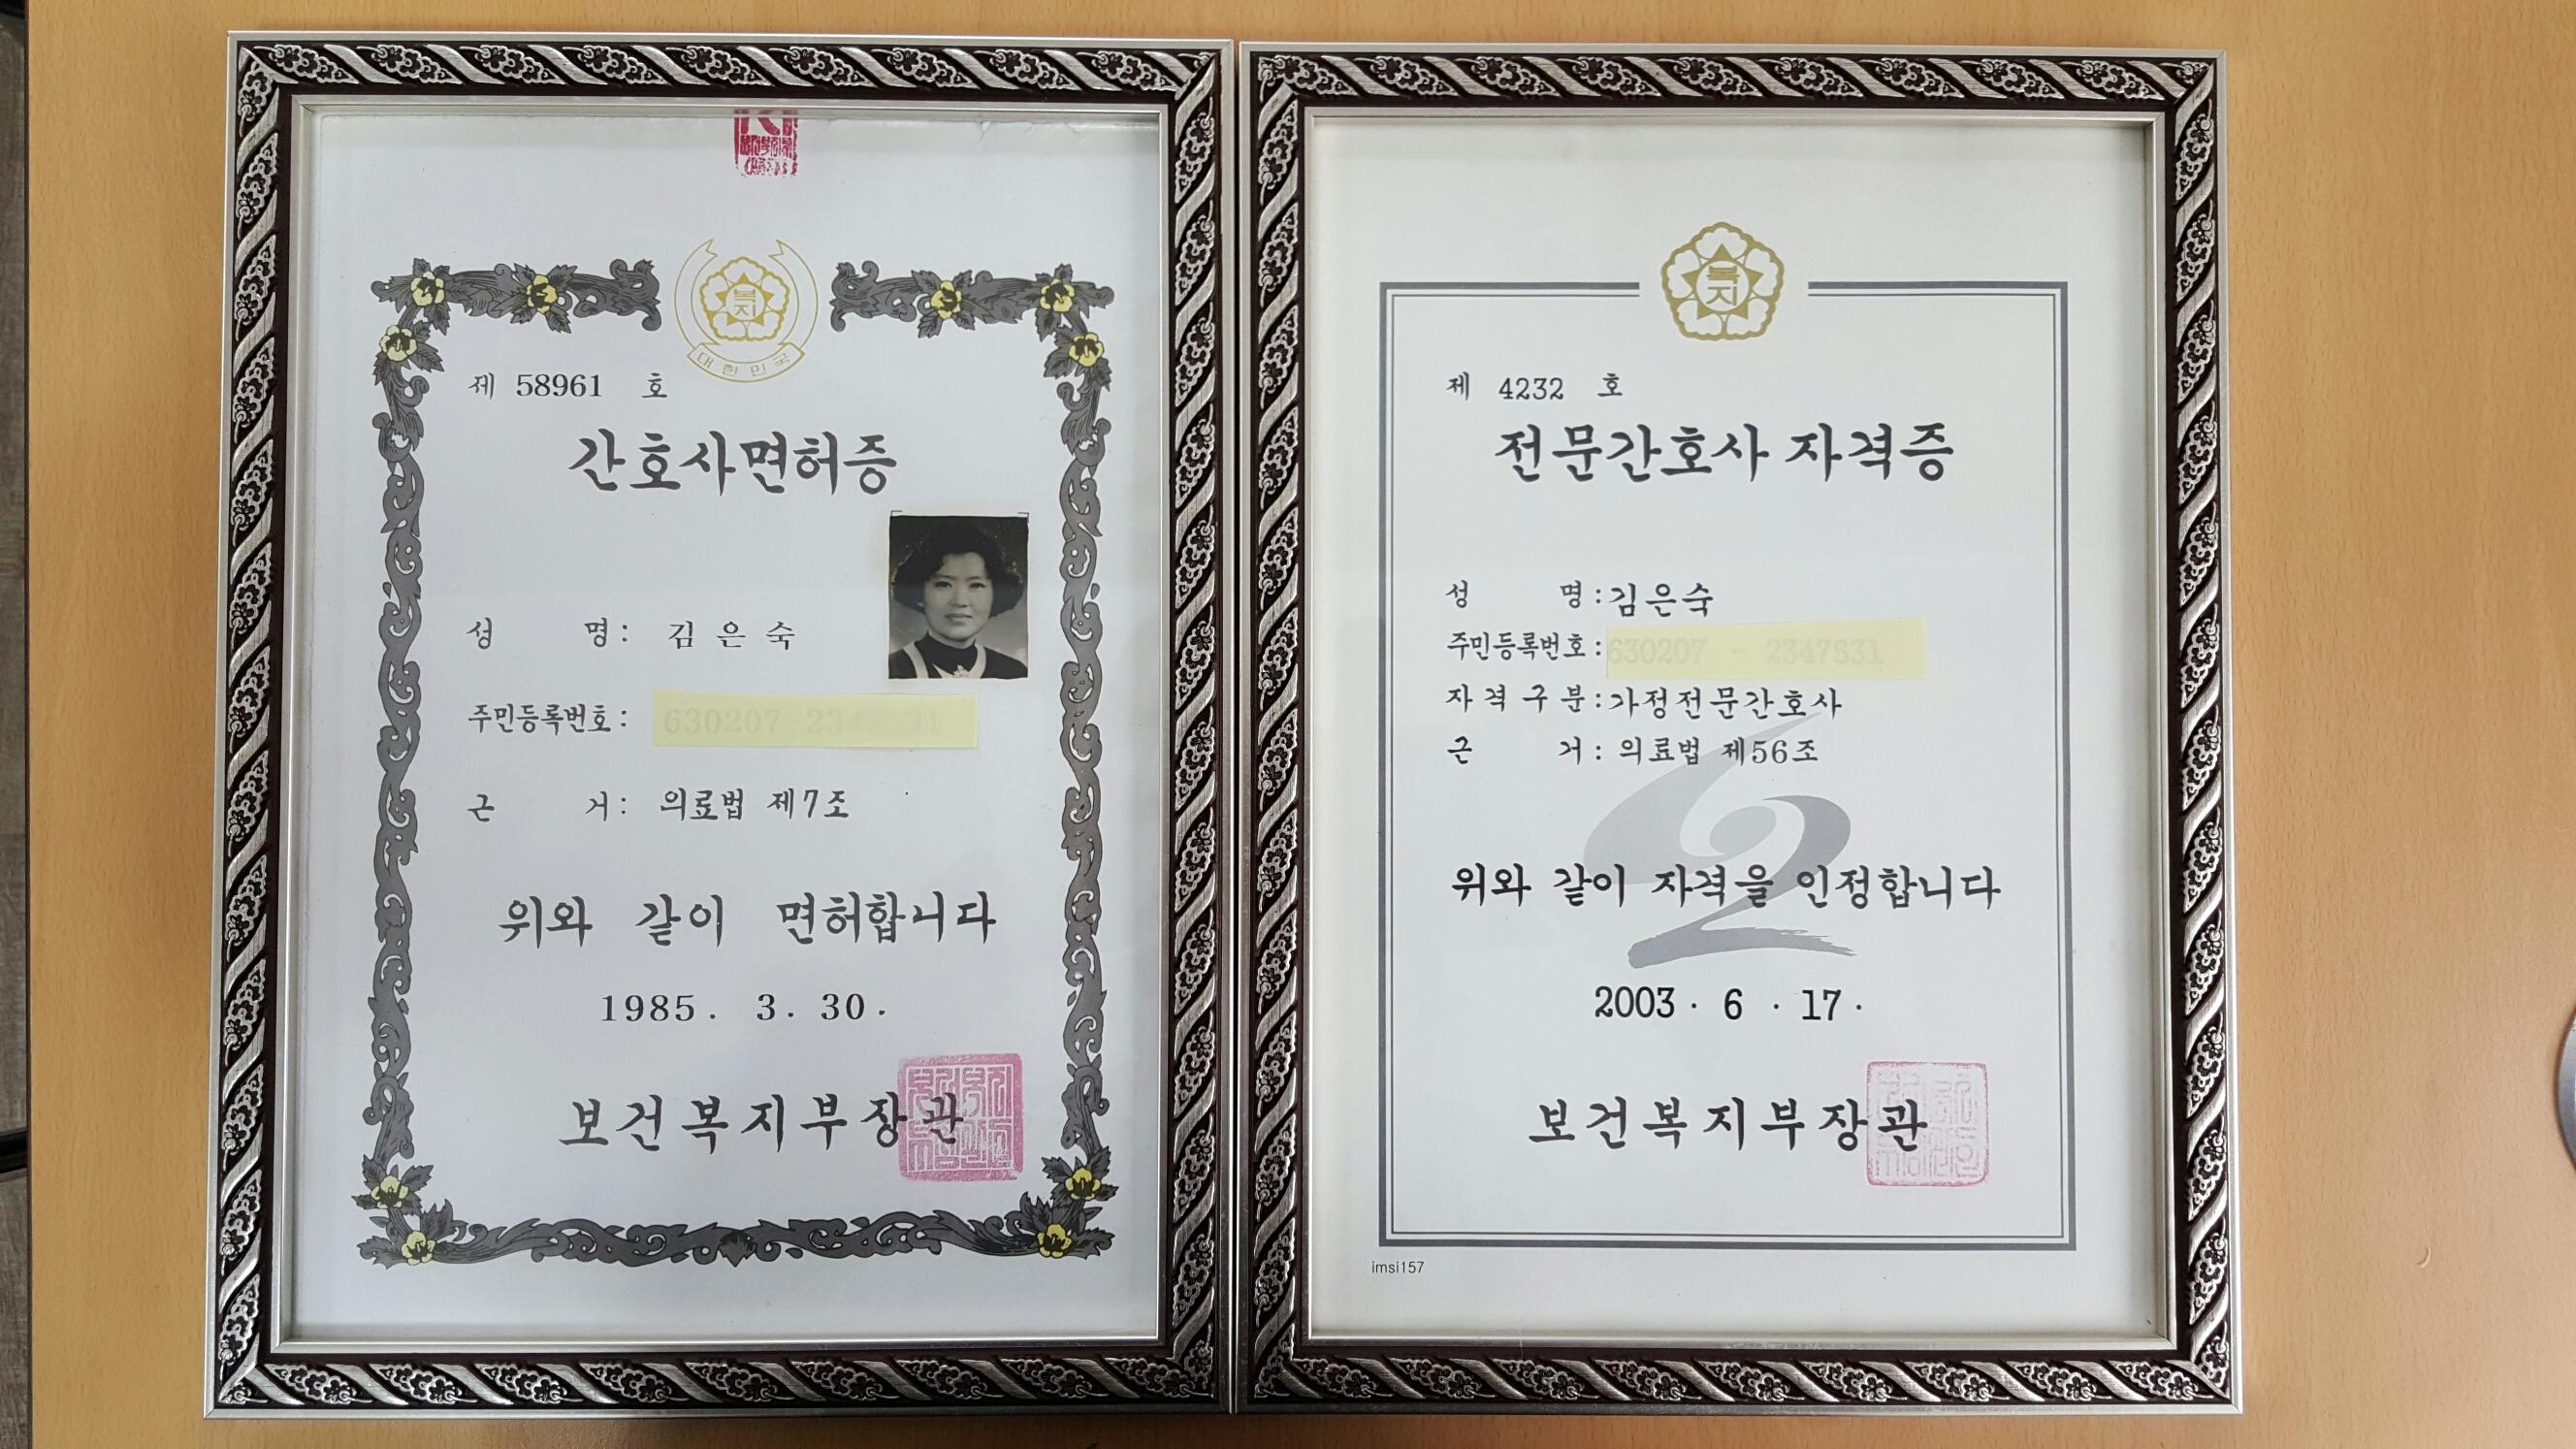 복지
대한민국
제 58961 호
간호사면허증
성 명: 김은숙
주민등록번호:
근 거: 의료법 제7조
위와 같이 면허합니다
1985. 3. 30.
보건복지부장관
복지
제 4232 호
전문간호사 자격증
성 명:김은숙
주민등록번호:
자격구분:가정전문간호사
근 거: 의료법 제56조
위와 같이 자격을 인정합니다
2003. 6. 17.
보건복지부장관
imsi157